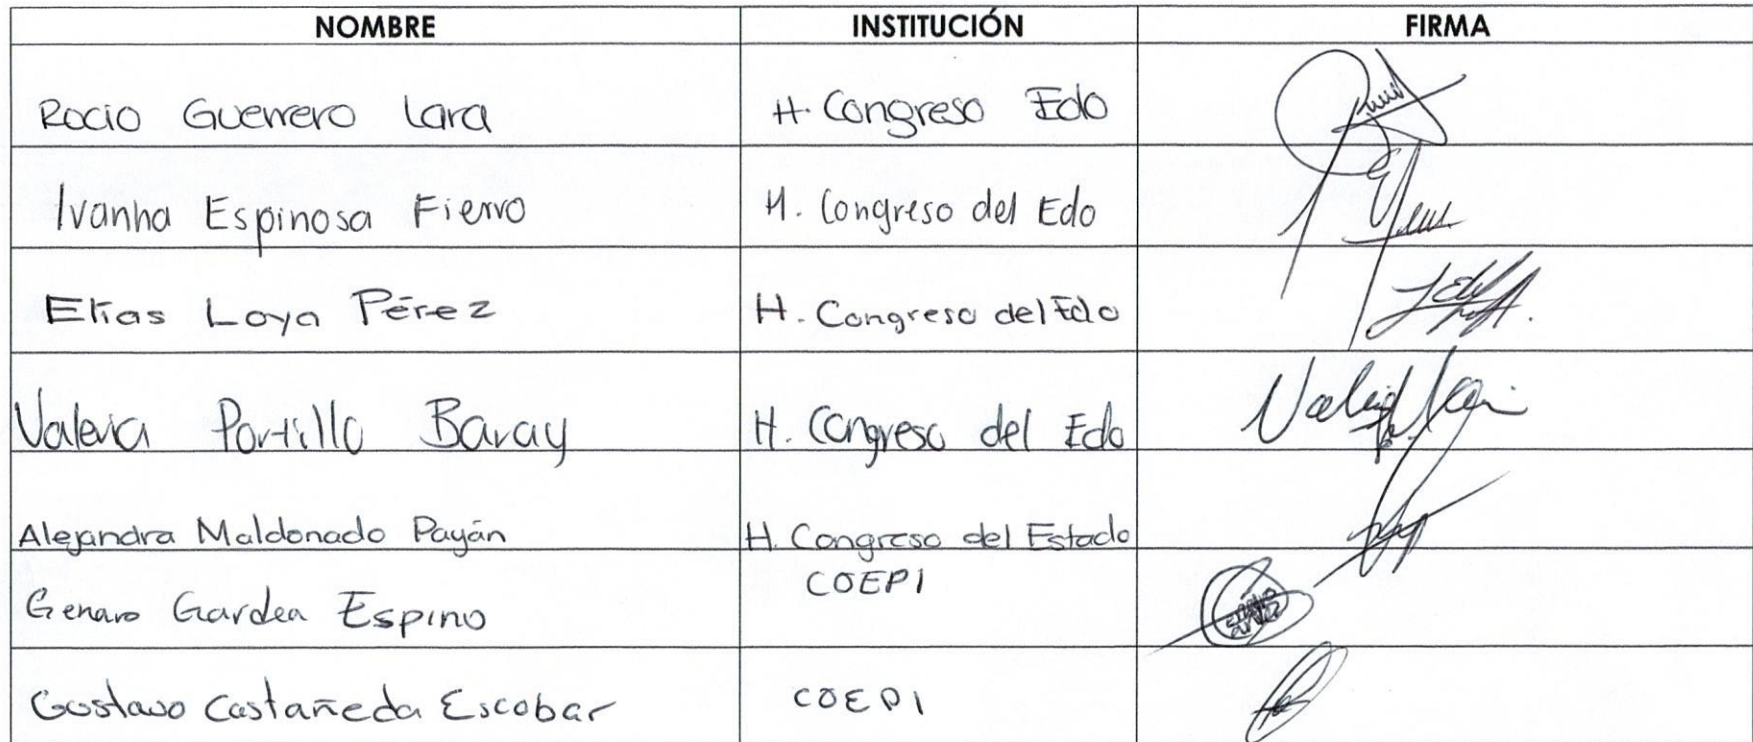 NOMBRE INSTITUCIÓN FIRMA
Rocio Guerrero Lara H. Congreso Edo
Ivanha Espinosa Fierro H. Congreso del Edo
Elías Loya Pérez H. Congreso del Edo
Valeria Portillo Baray H. Congreso del Edo
Alejandra Maldonado Payán H. Congreso del Estado
Genaro Gardea Espino COEPI
Gustavo Castañeda Escobar COEPI